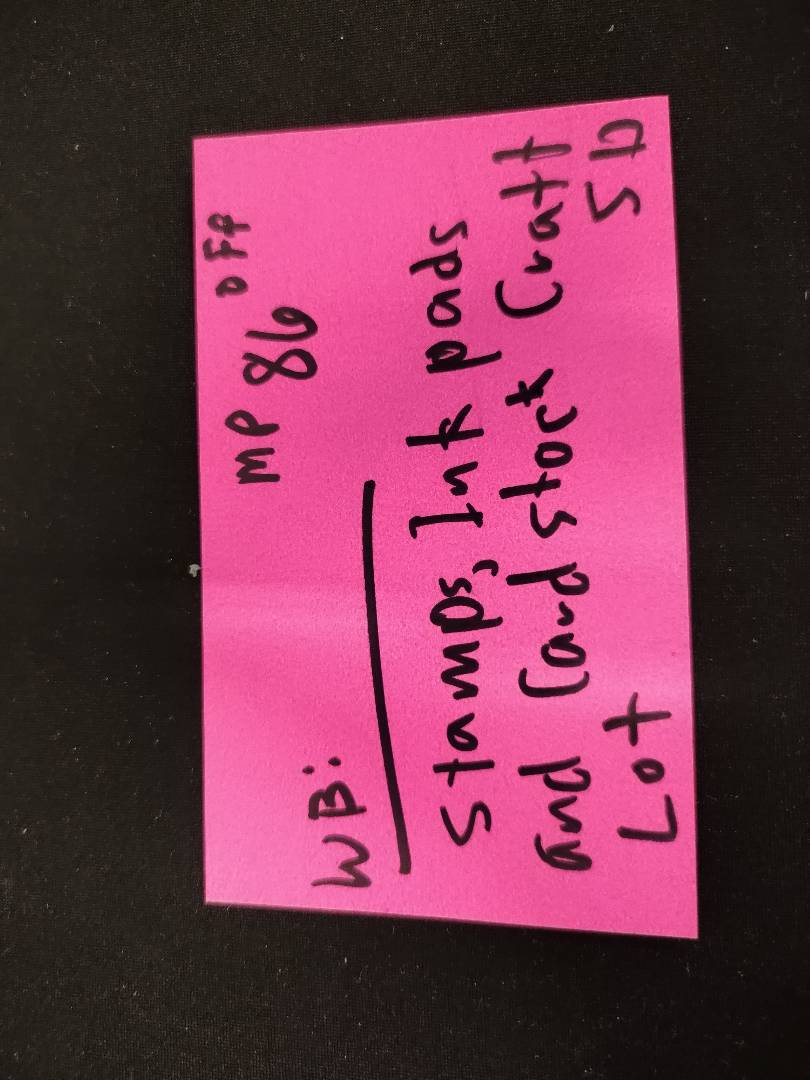 OFF
MP 86
WB:
Stamps, Ink pads
and Card stock Craft
Lot SD